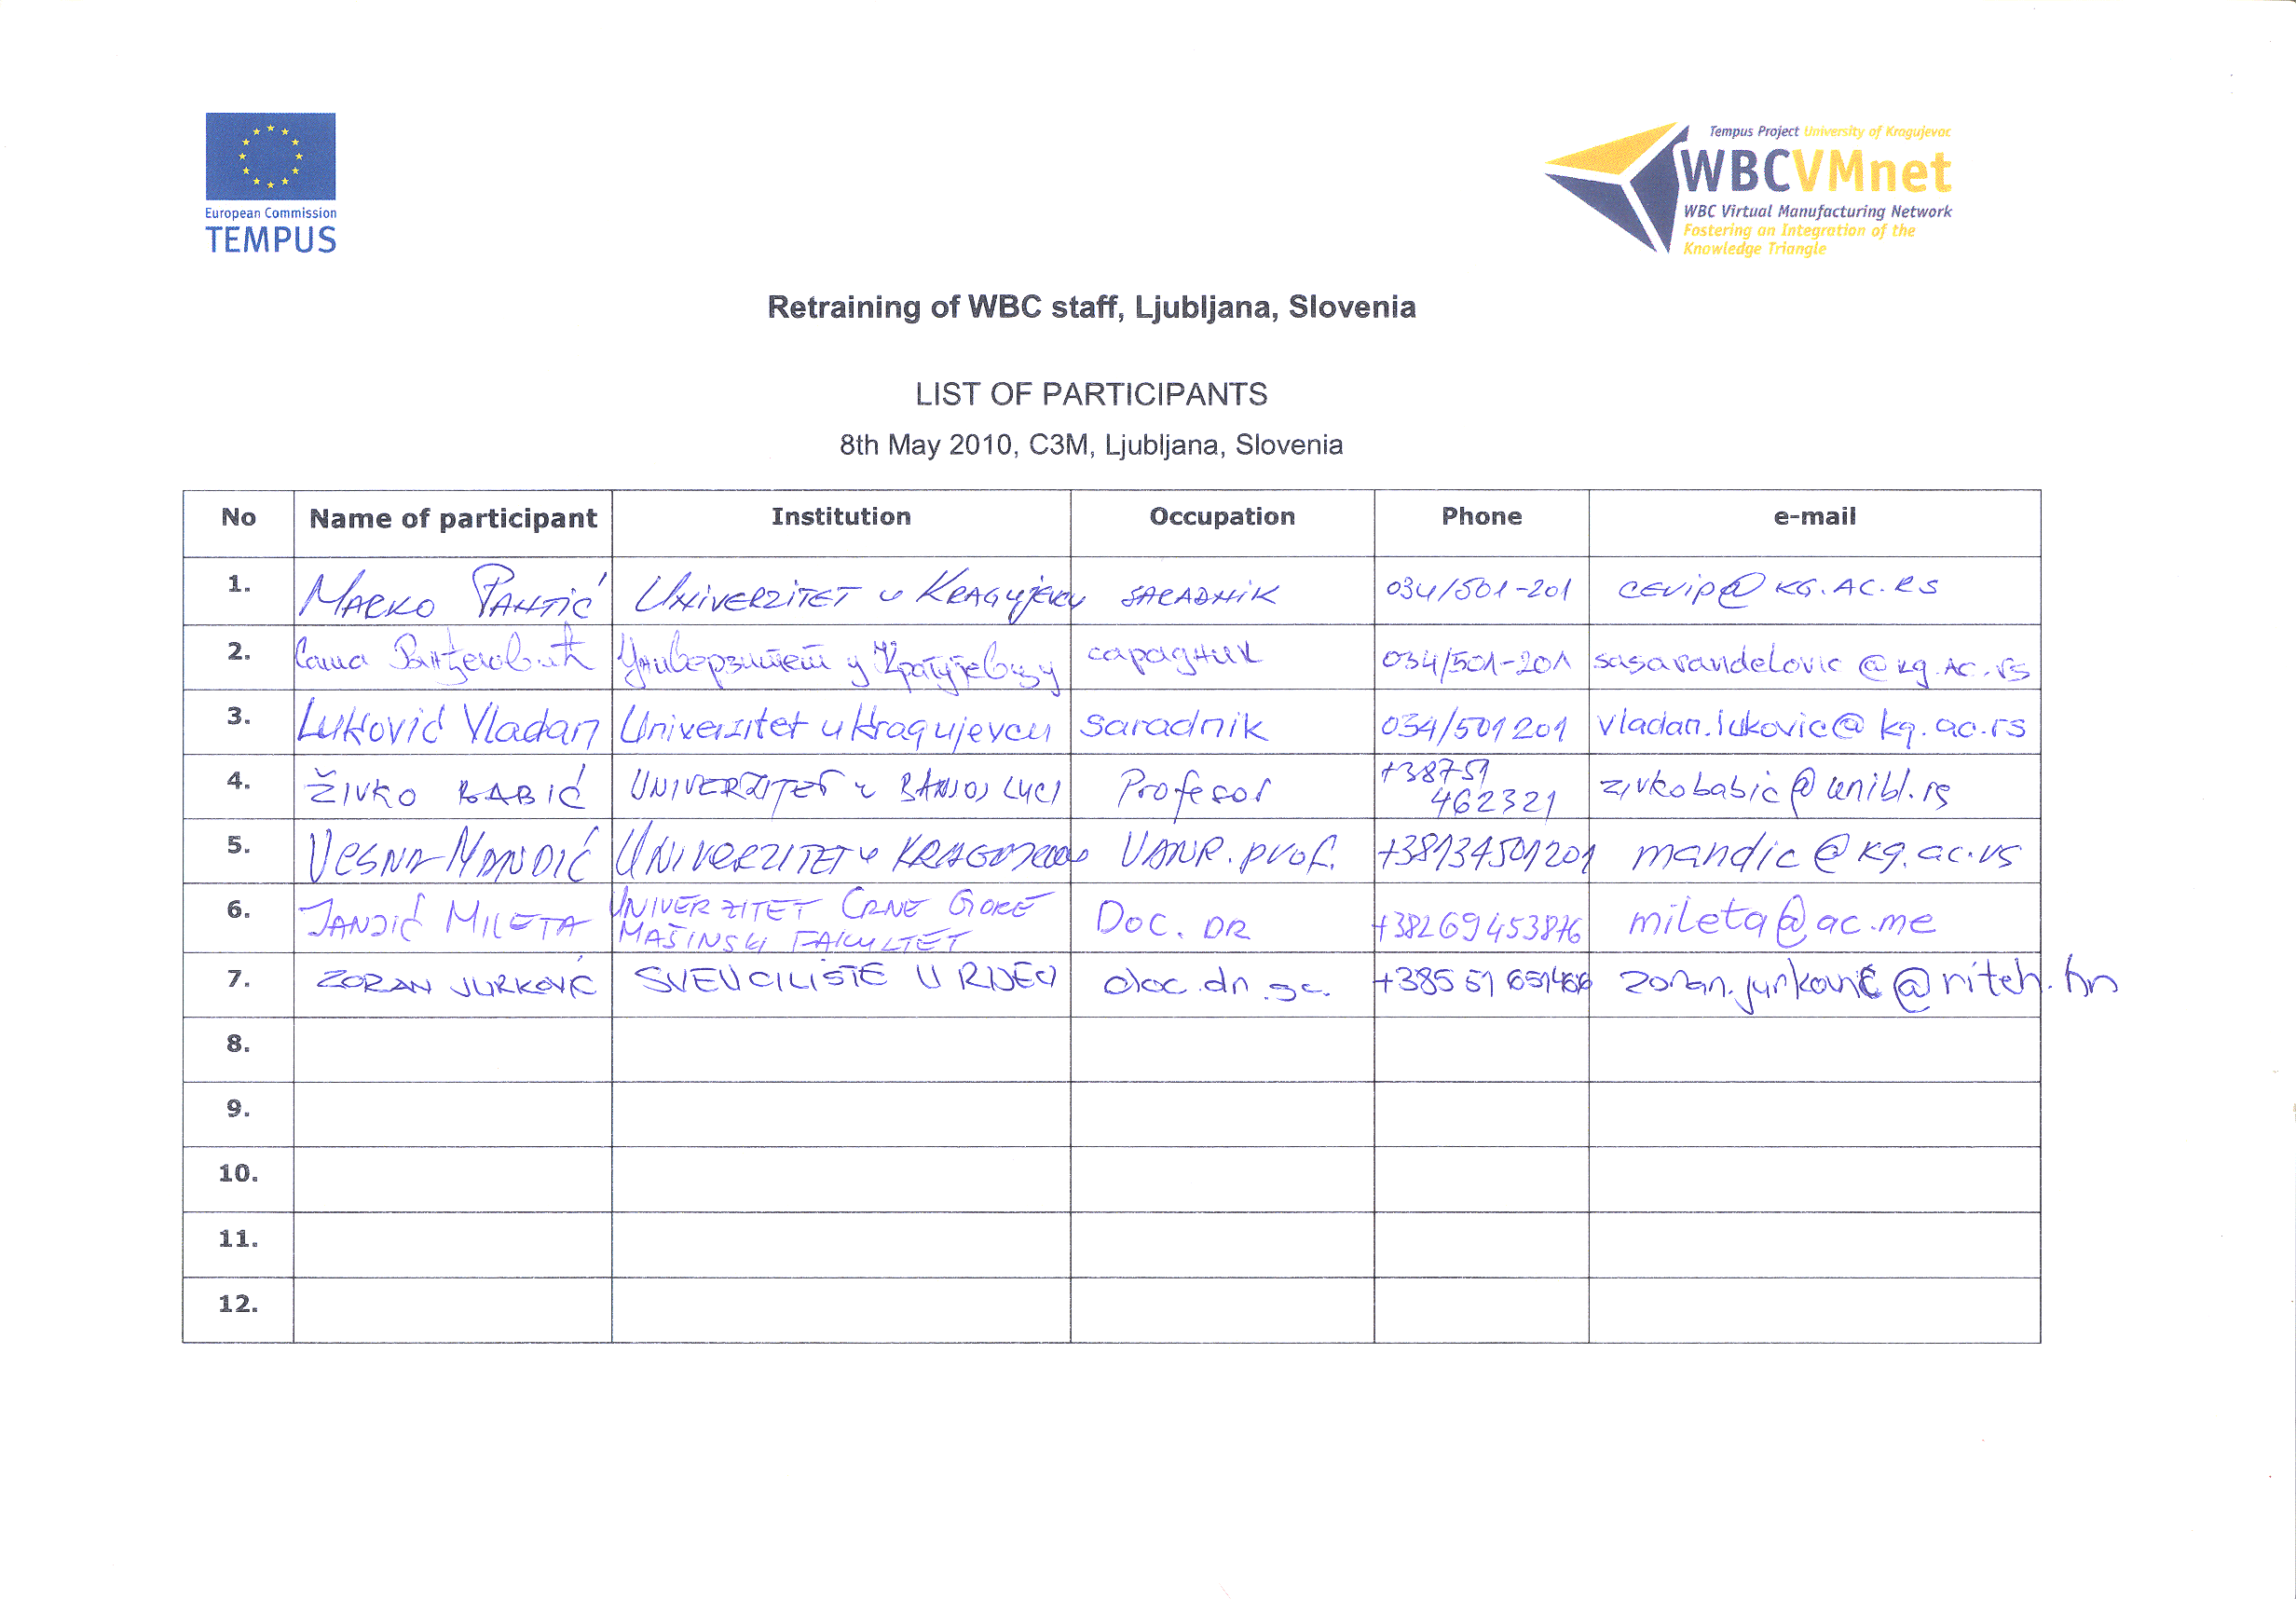 European Commission
TEMPUS
Tempus Project University of Kragujevac
WBCVMnet
WBC Virtual Manufacturing Network
Fostering an Integration of the
Knowledge Triangle
Retraining of WBC staff, Ljubljana, Slovenia
LIST OF PARTICIPANTS
8th May 2010, C3M, Ljubljana, Slovenia
No Name of participant Institution Occupation Phone e-mail
1. MARKO PANTIĆ UNIVERZITET U KRAGUJEVCU SARADNIK 034/501-201 CEVIP@KG.AC.RS
2. Саша Ранђеловић Универзитет у Крагујевцу сарадник 034/501-201 sasarandelovic@kg.ac.rs
3. Luković Vladan Univerzitet u Kragujevcu saradnik 034/501 201 vladan.lukovic@kg.ac.rs
4. ŽIVKO BABIĆ UNIVERZITET U BANJOJ LUCI Profesor +38751 462321 zivkobabic@unibl.rs
5. VESNA MANDIĆ UNIVERZITET U KRAGUJEVCU VANR. prof. +38134501201 mandic@kg.ac.rs
6. JANDIĆ MILETA UNIVERZITET CRNE GORE DOC. DR +38269453876 mileta@ac.me
MAŠINSKI FAKULTET
7. ZORAN JURKOVIĆ SVEUČILIŠTE U RIJECI doc.dr.sc. +385 51 651466 zoran.jurkovic@riteh.hr
8.
9.
10.
11.
12.